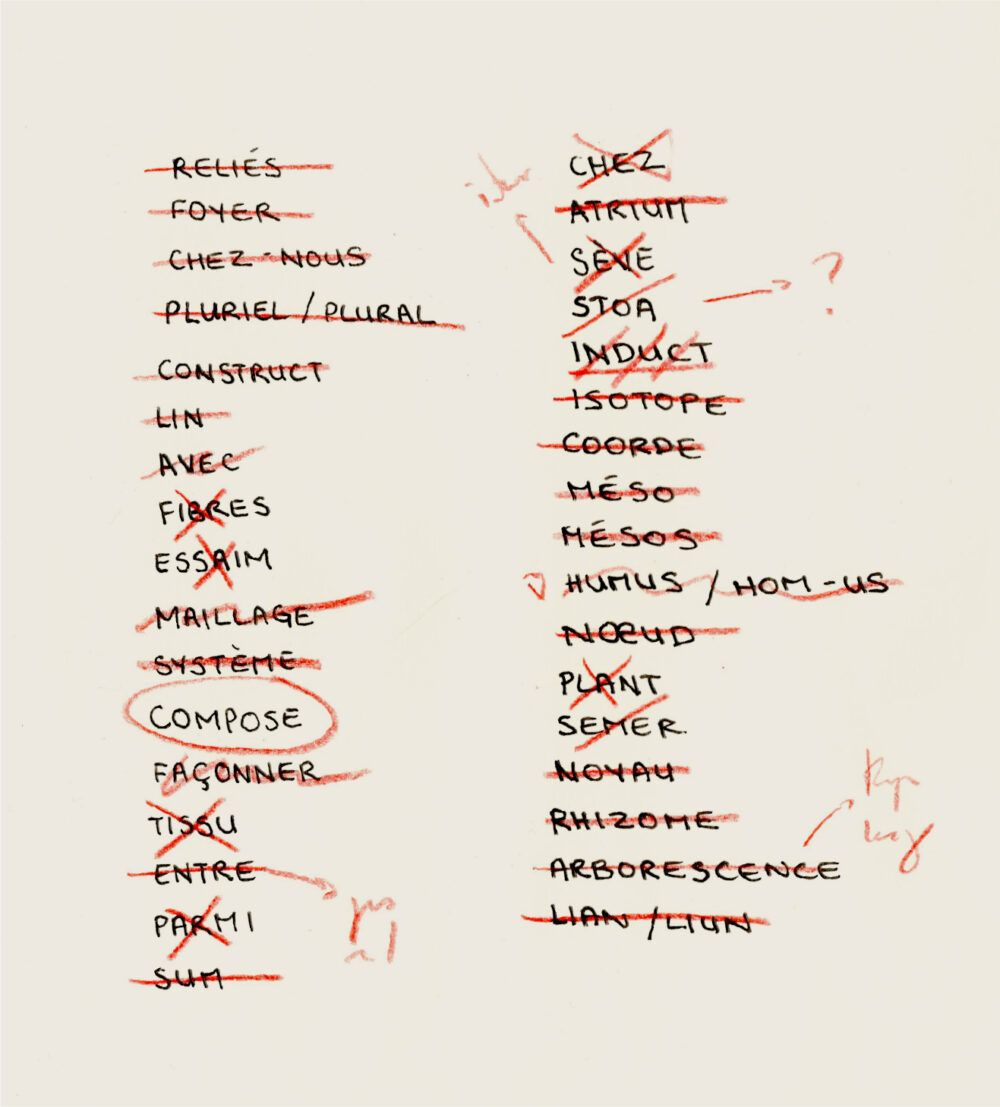 RELIÉS
FOYER
CHEZ-NOUS
PLURIEL / PLURAL
CONSTRUCT
LIN
AVEC
FIBRES
ESSAIM
MAILLAGE
SYSTÈME
COMPOSE
FAÇONNER
TISSU
ENTRE
PARMI
SUM
CHEZ
ATRIUM
SÈVE
STOA
?
INDUCT
ISOTOPE
COORDE
MÉSO
MÉSOS
HUMUS / HOM-US
NŒUD
PLANT
SEMER
NOYAU
RHIZOME
ARBORESCENCE
LIAN / LIUN